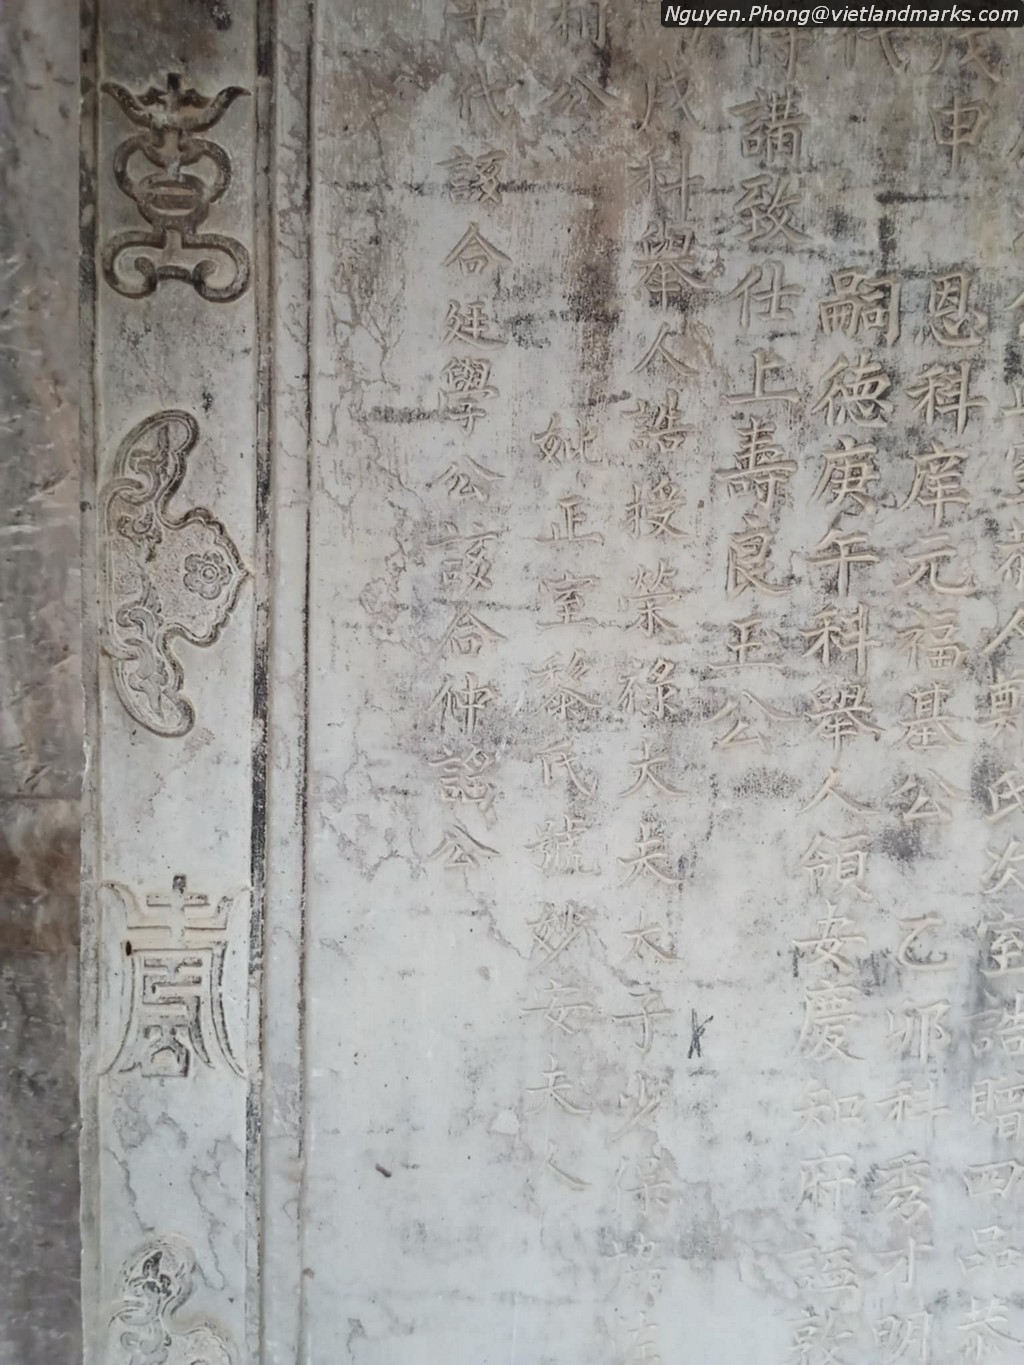 Nguyen.Phong@vietlandmarks.com
恭人鄭氏次室誥贈四品恭
戊申 恩科庠元福基公 乙卯科秀才明
代 嗣德庚午科舉人領安慶知府誥
侍講致仕上壽良王公
戌科舉人誥授榮祿大夫太子少保
公 妣正室黎氏號妙安夫人
年代 該合廷學公該合仲謠公